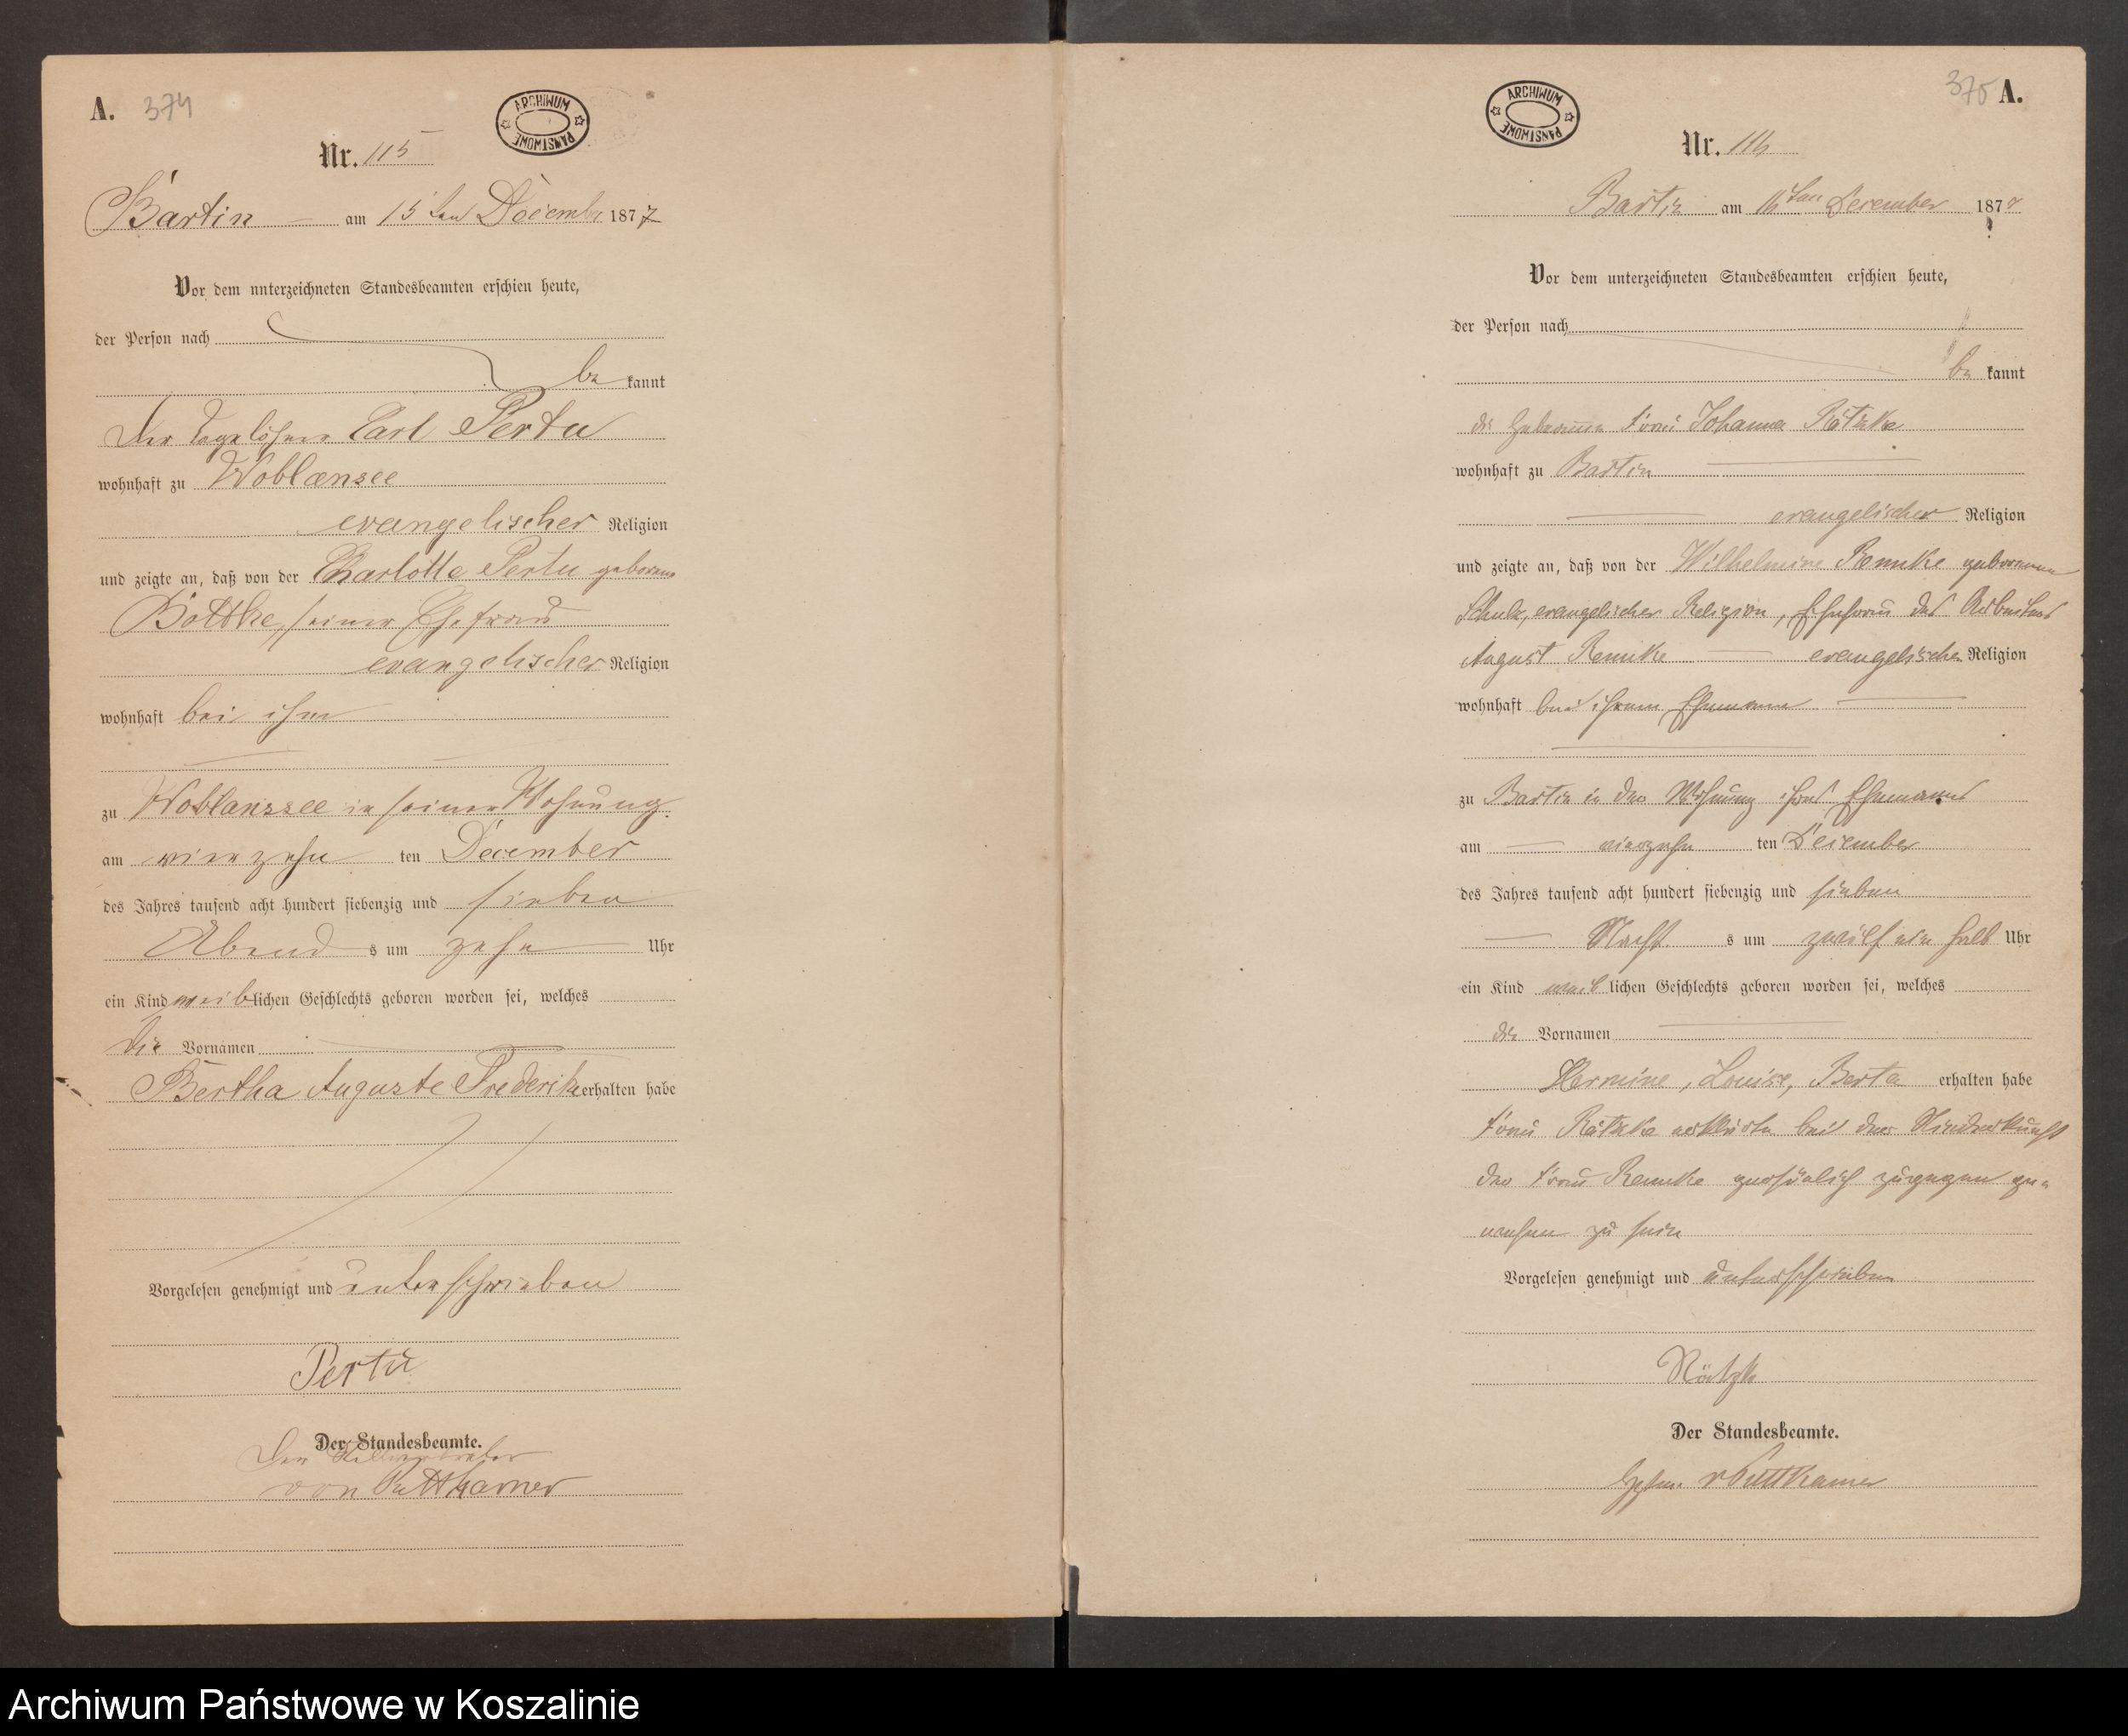 A. 374
ARCHIWUM PAŃSTWOWE
Nr. 115
Bartin am 15ten December 1877
Vor dem unterzeichneten Standesbeamten erschien heute,
der Person nach
be kannt
Der Tagelöhner Carl Pertu
wohnhaft zu Woblansee
evangelischer Religion
und zeigte an, daß von der Charlotte Pertu geborene
Bottke, seiner Ehefrau
evangelischer Religion
wohnhaft bei ihm
zu Woblanssee in seiner Wohnung
am vierzehn ten December
des Jahres tausend acht hundert siebenzig und sieben
Abend s um zehn Uhr
ein Kind weiblichen Geschlechts geboren worden sei, welches
die Vornamen
Bertha Auguste Frederike erhalten habe
Vorgelesen genehmigt und unterschrieben
Pertu
Der Standesbeamte.
Der Stellvertreter
von Puttkamer
375 A.
ARCHIWUM PAŃSTWOWE
Nr. 116
Bartin am 16ten December 1877
Vor dem unterzeichneten Standesbeamten erschien heute,
der Person nach
be kannt
die Hebamme Frau Johanna Rätzke
wohnhaft zu Bartin
evangelischer Religion
und zeigte an, daß von der Wilhelmine Remke geborene
Schulz, evangelischer Religion, Ehefrau des Arbeiters
August Remke evangelischer Religion
wohnhaft bei ihrem Ehemann
zu Bartin in der Wohnung ihres Ehemannes
am vierzehn ten December
des Jahres tausend acht hundert siebenzig und sieben
Nacht s um zwölf ein halb Uhr
ein Kind weiblichen Geschlechts geboren worden sei, welches
die Vornamen
Hermine, Louise, Berta erhalten habe
Frau Rätzke erklärte bei der Niederkunft
der Frau Remke persönlich zugegen ge=
wesen zu sein
Vorgelesen genehmigt und unterschrieben
Rätzke
Der Standesbeamte.
v Puttkamer
Archiwum Państwowe w Koszalinie